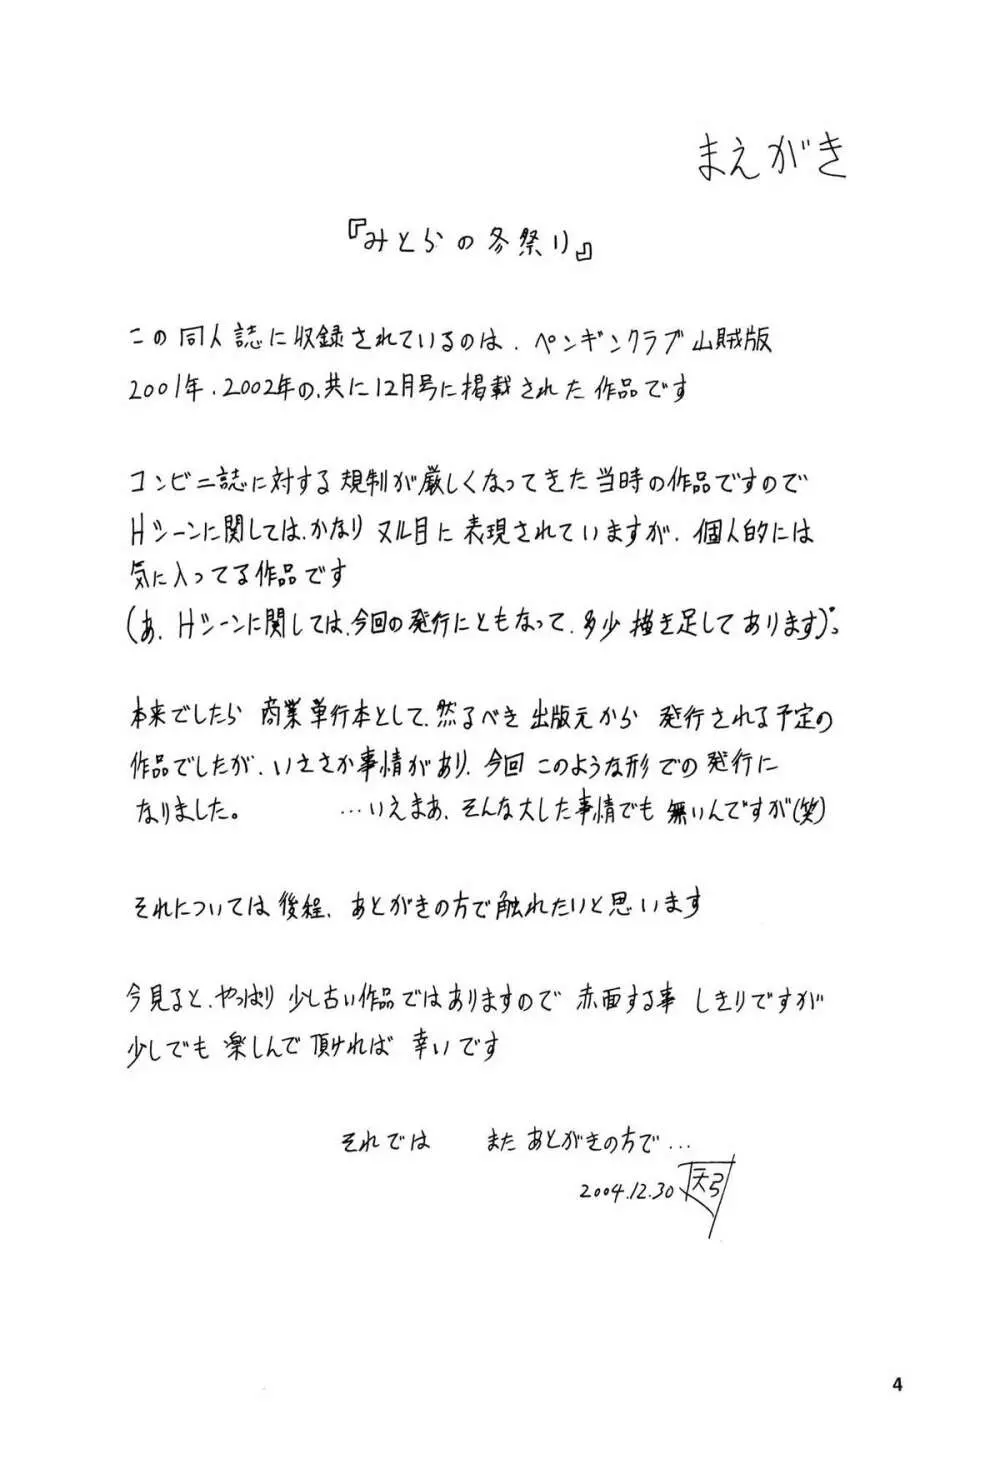 まえがき
『みとらの冬祭り』
この同人誌に収録されているのは、ペンギンクラブ山賊版
2001年、2002年の、共に12月号に掲載された作品です
コンビニ誌に対する規制が厳しくなってきた当時の作品ですので
Hシーンに関しては、かなりヌル目に表現されていますが、個人的には
気に入ってる作品です
(あ、Hシーンに関しては、今回の発行にともなって、多少描き足してあります)。
本来でしたら商業単行本として、然るべき出版元から発行される予定の
作品でしたが、いささか事情があり、今回このような形での発行に
なりました。 …いえまあ、そんな大した事情でも無いんですが(笑)
それについては後程、あとがきの方で触れたいと思います
今見ると、やっぱり少し古い作品ではありますので赤面する事しきりですが
少しでも楽しんで頂ければ幸いです
それでは またあとがきの方で…
2004.12.30
4